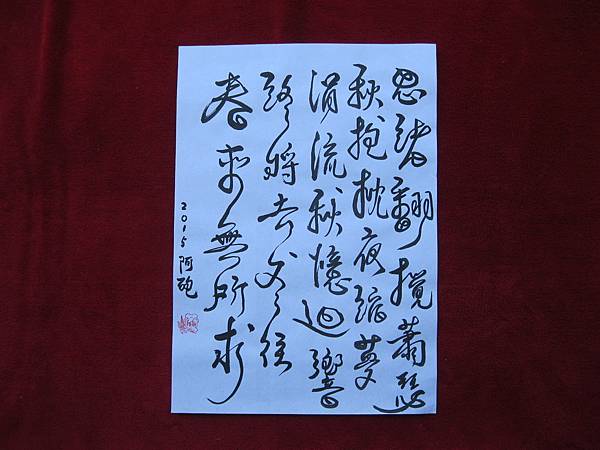 思緒翻攪蕭瑟
秋抱枕夜夢
涓流秋憶迴響
將去往
春來無所求
2015 阿砲